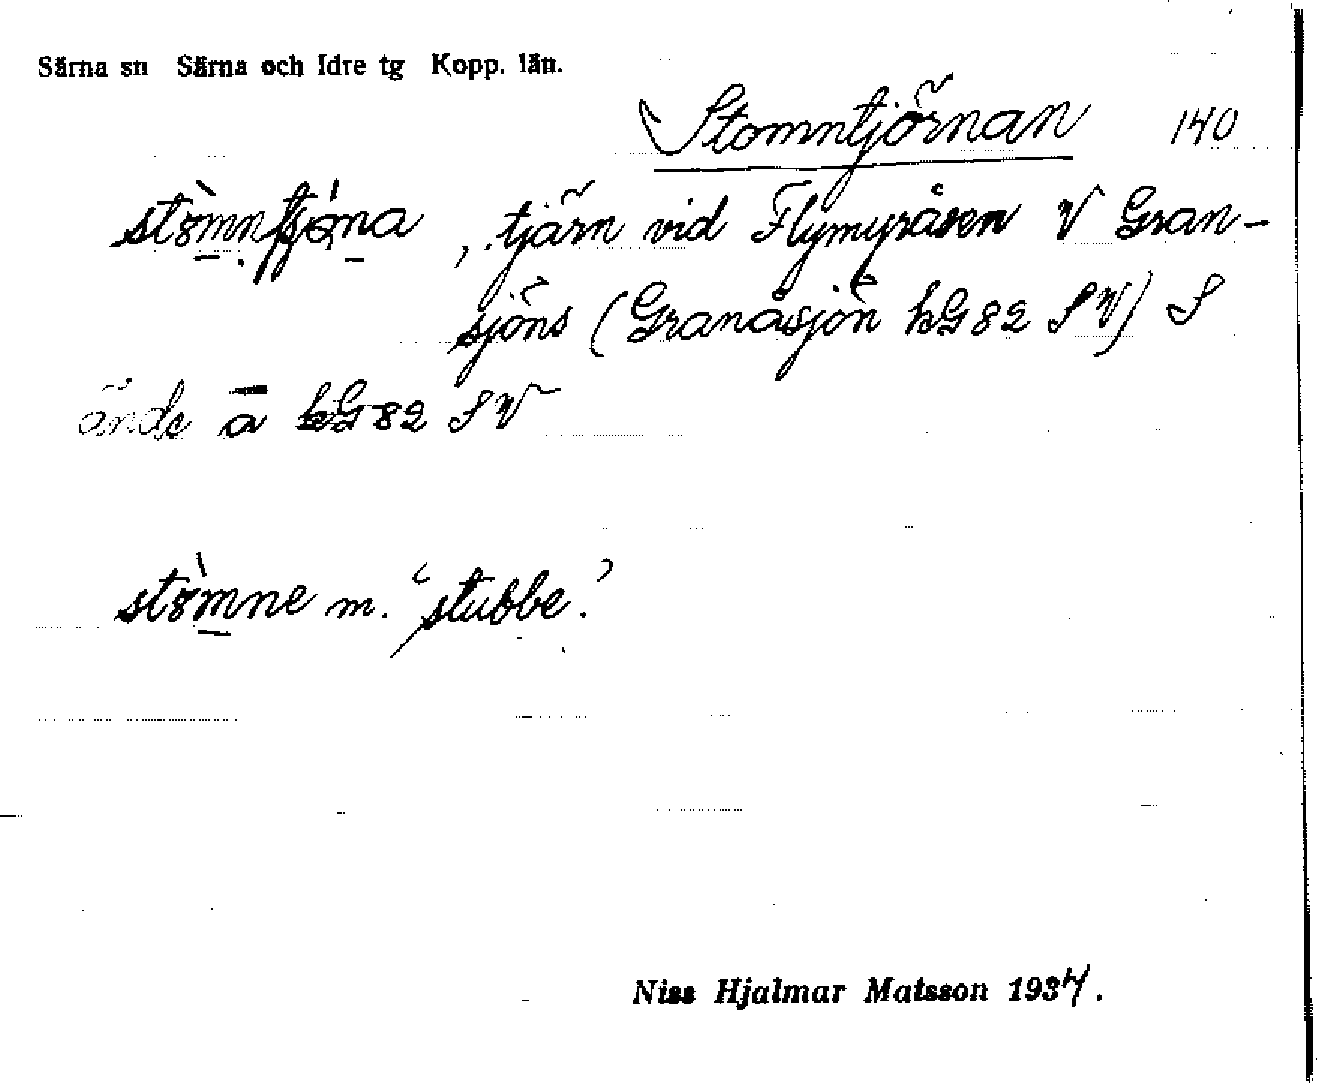 Särna sn Särna och Idre tg Kopp. län.
Stomntjörnan 140
, tjärn vid Flymyråsen V Gran-
sjöns (Granåsjön kG82 SV) S
ände å kG82 SV
stòmne m. ‘stubbe.’
Niss Hjalmar Matsson 1934.